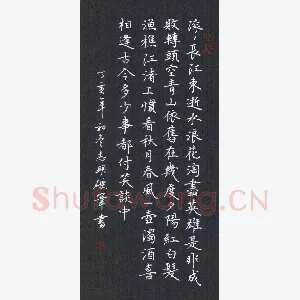 滚〻長江東逝水浪花淘盡英雄是非成
敗轉頭空青山依舊在幾度夕陽紅白髮
漁樵江渚上慣看秋月春風一壺濁酒喜
相逢古今多少事都付笑談中
丁亥年初冬志 書
Shufawang.CN